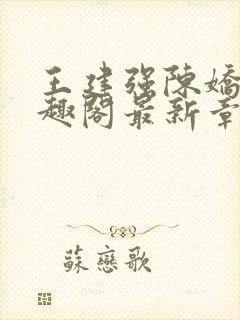 王建强陳嬌
趣閣最新章
蘇戀歌